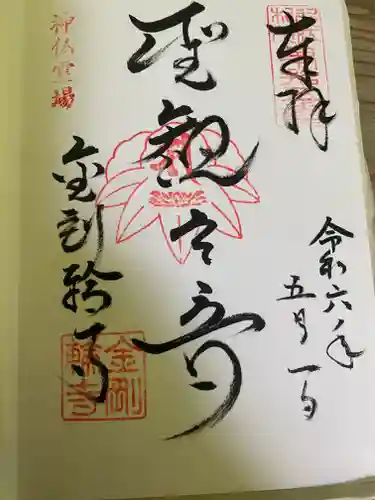 奉拝
令和六年
五月一日
聖観世音
神仏霊場
金剛輪寺
金剛
輪寺